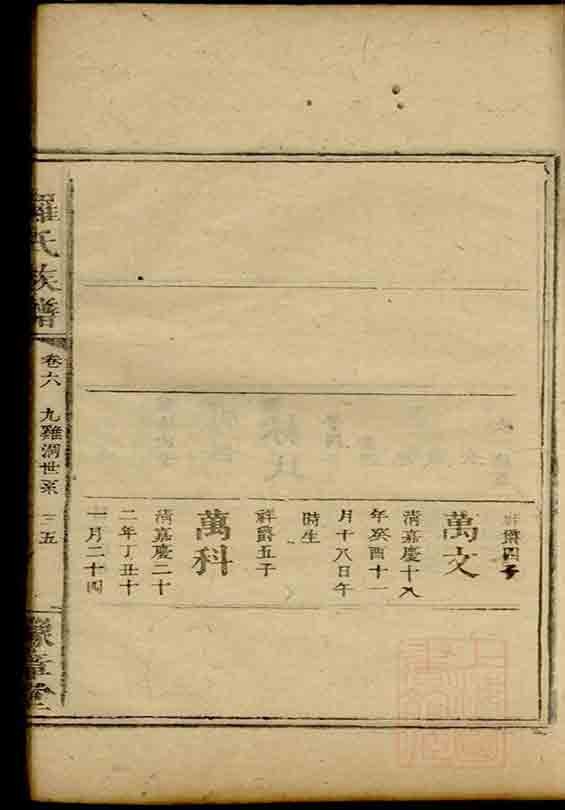 祥爵四子
萬文
清嘉慶十八
年癸酉十一
月十八日午
時生
祥爵五子
萬科
清嘉慶二十
二年丁丑十
一月二十四
羅氏族譜
卷六
世系
三五